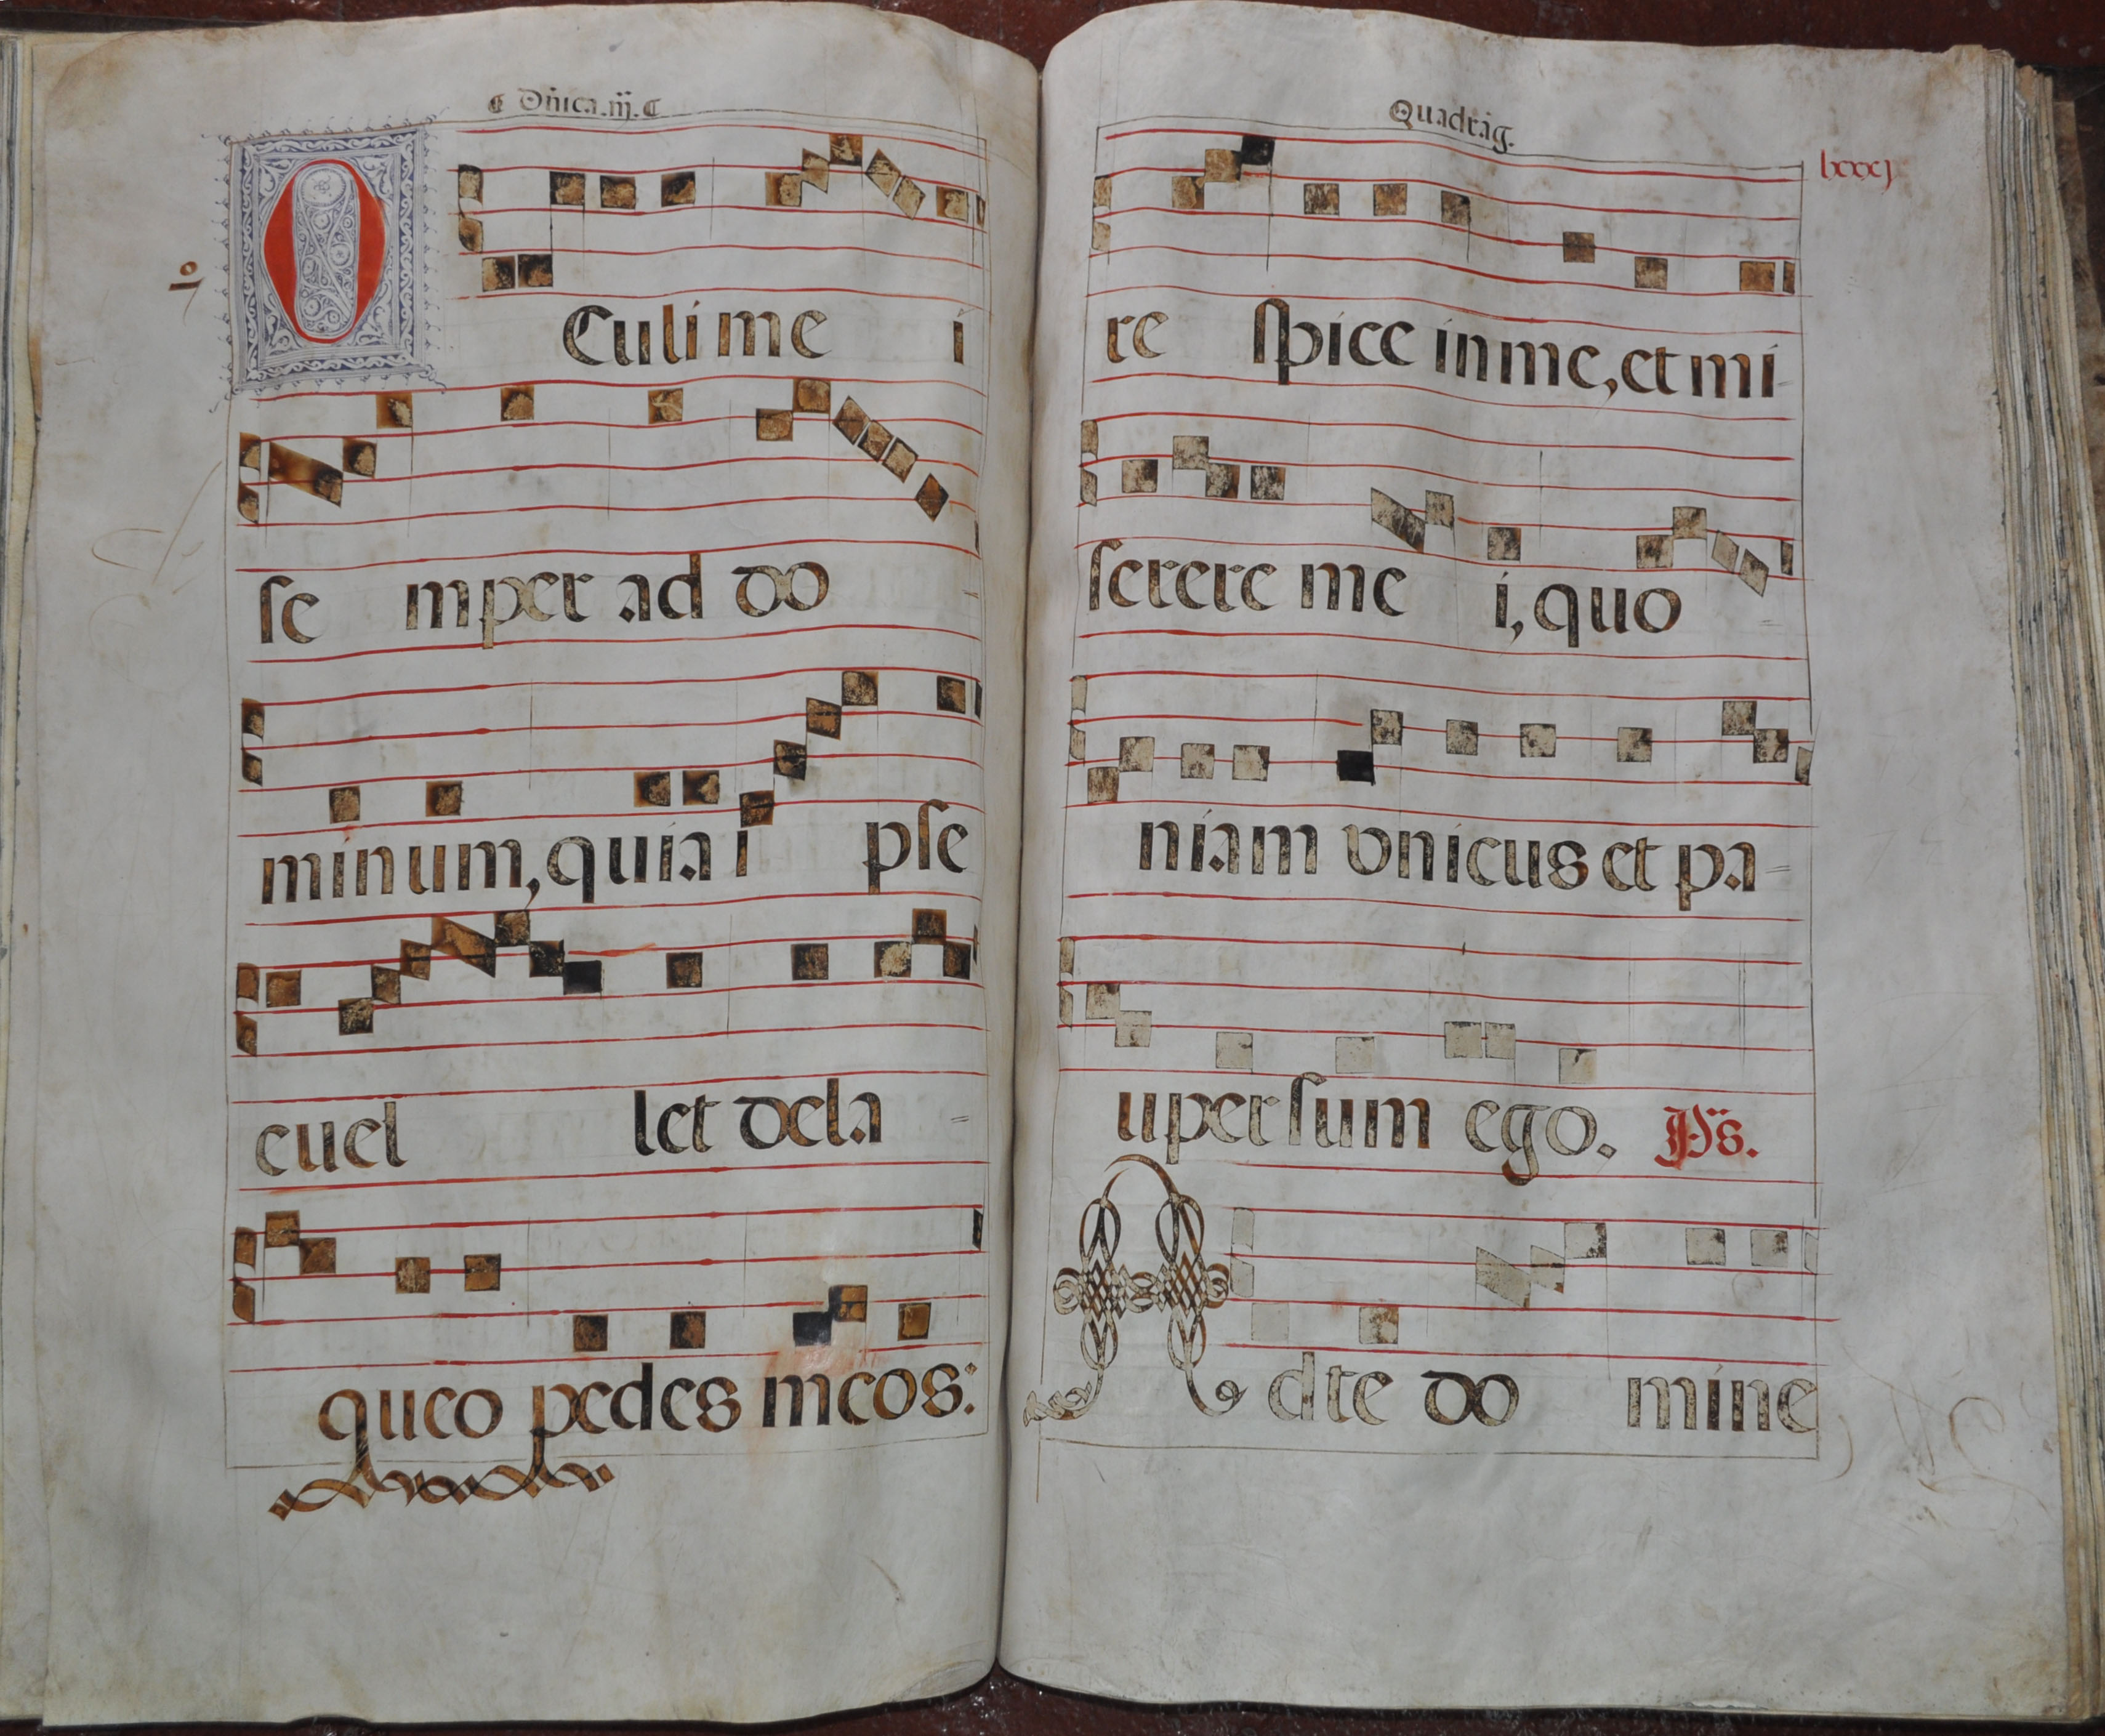 Dñica.iij.
OCuli me i
se mper ad do
minum, quia i pse
euel let dela
queo pedes meos:
Quadrag.
lxxxj
re spice in me, et mi
serere me i, quo
niam vnicus et pa
uper sum ego. Ps.
Ad te do mine